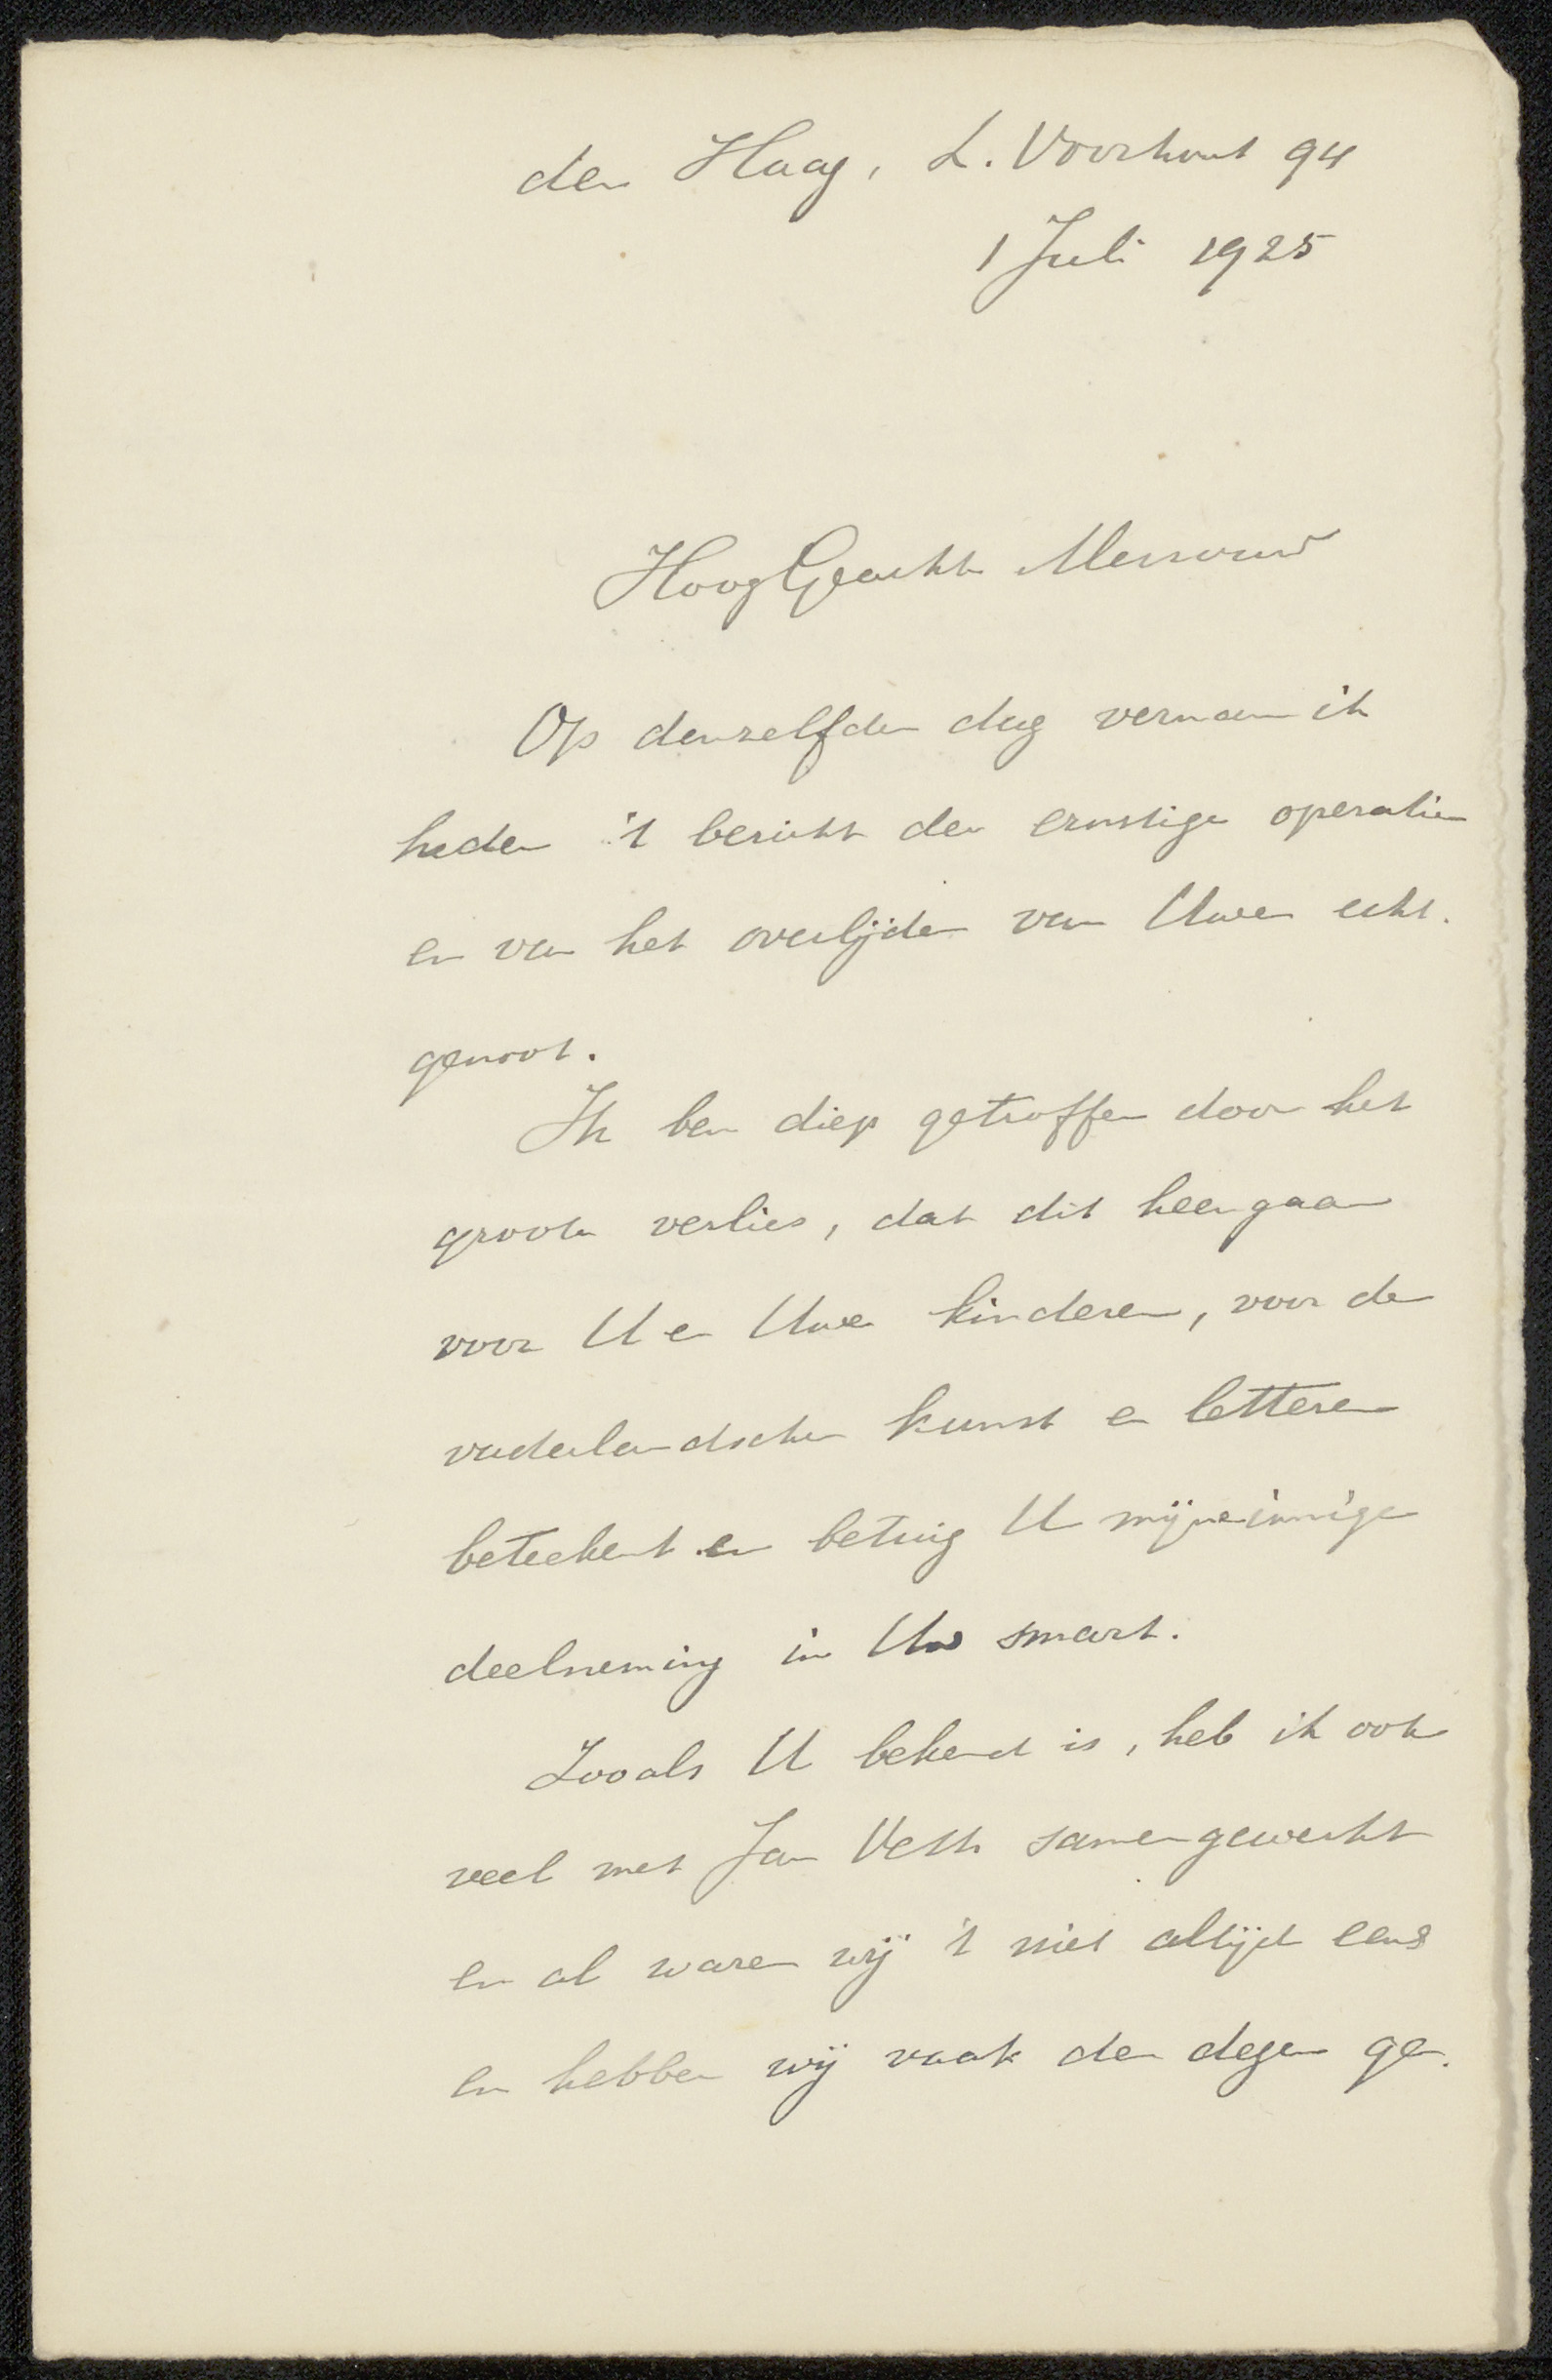 den Haag, L. Voorhout 94
1 Juli 1925
HoogGeachte Mevrouw
Op denzelfden dag vernam ik
heden 't bericht der ernstige operatie
en van het overlijden van Uwen echt-
genoot.
Ik ben diep getroffen door het
groote verlies, dat dit heengaan
voor U en Uwe kinderen, voor de
vaderlandsche kunst en letteren
beteekent en betuig U mijne innige
deelneming in Uw smart.
Zooals U bekend is, heb ik ook
veel met Jan Veth samengewerkt
en al waren wij 't niet altijd eens
en hebben wij vaak den degen ge-